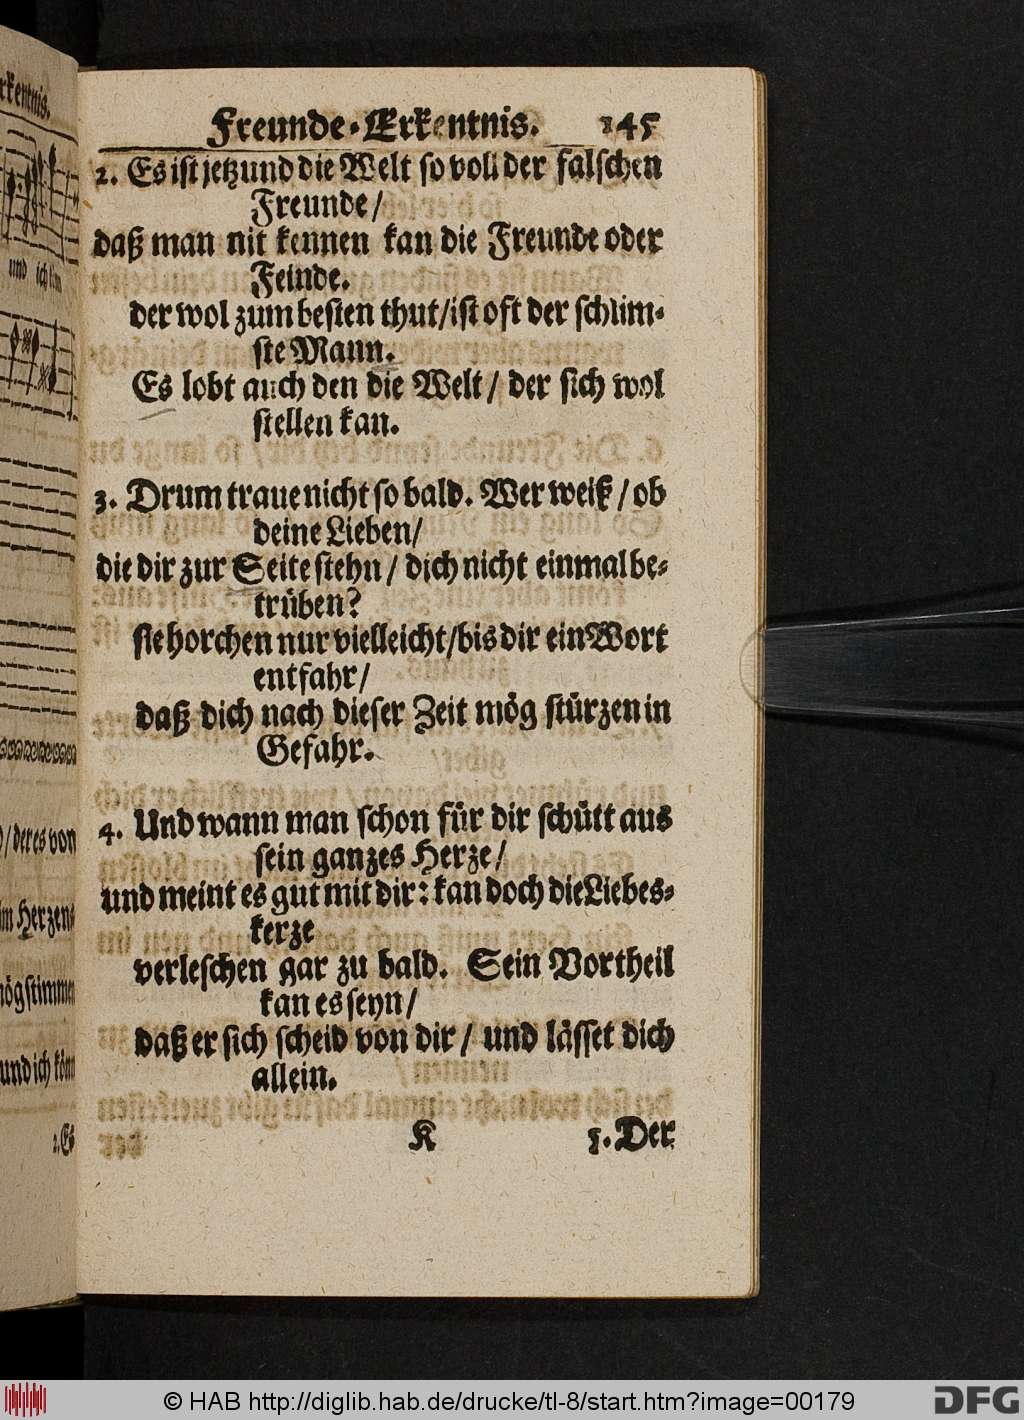 rkentnis.
und ich
/ der es von
im Herzens
mögstimmen
und ich kön
2. Es
Freunde-Erkentnis. 145
2. Es ist jetzund die Welt so voll der falschen
Freunde/
daß man nit kennen kan die Freunde oder
Feinde.
der wol zum besten thut/ ist oft der schlim-
ste Mann.
Es lobt auch den die Welt/ der sich wol
stellen kan.
3. Drum traue nicht so bald. Wer weiß/ ob
deine Lieben/
die dir zur Seite stehn/ dich nicht einmal be-
trüben?
sie horchen nur vielleicht/ bis dir ein Wort
entfahr/
daß dich nach dieser Zeit mög stürzen in
Gefahr.
4. Und wann man schon für dir schütt aus
sein ganzes Herze/
und meint es gut mit dir: kan doch die Liebes-
kerze
verleschen gar zu bald. Sein Vortheil
kan es seyn/
daß er sich scheid von dir/ und lässet dich
allein.
K 5. Der
© HAB http://diglib.hab.de/drucke/tl-8/start.htm?image=00179
DFG